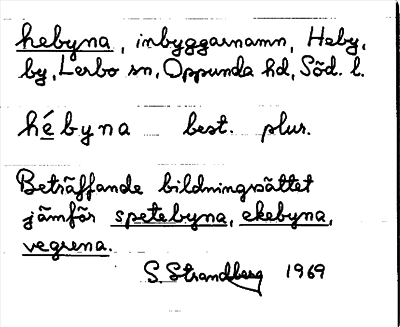 hebyna, inbyggarnamn, Heby,
by, Lerbo sn, Oppunda hd, Söd. l.
hébyna best. plur.
Beträffande bildningssättet
jämför spetebyna, ekebyna,
vegrena.
S. Strandberg 1969